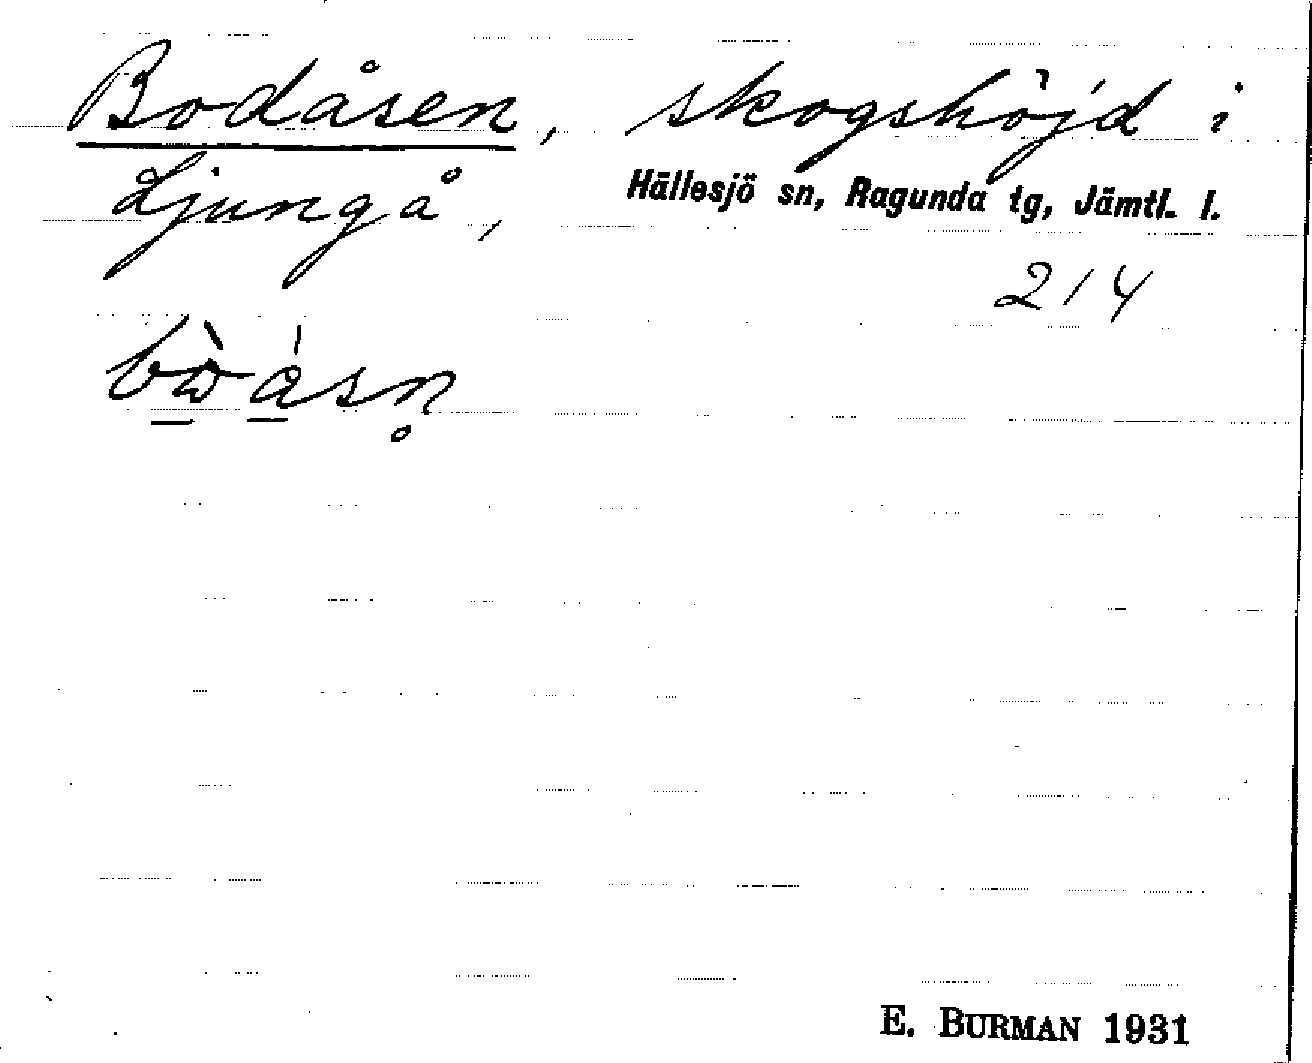 Bodåsen, skogshöjd i
Ljungå, Hällesjö sn, Ragunda tg, Jämtl. l.
214
E. BURMAN 1931